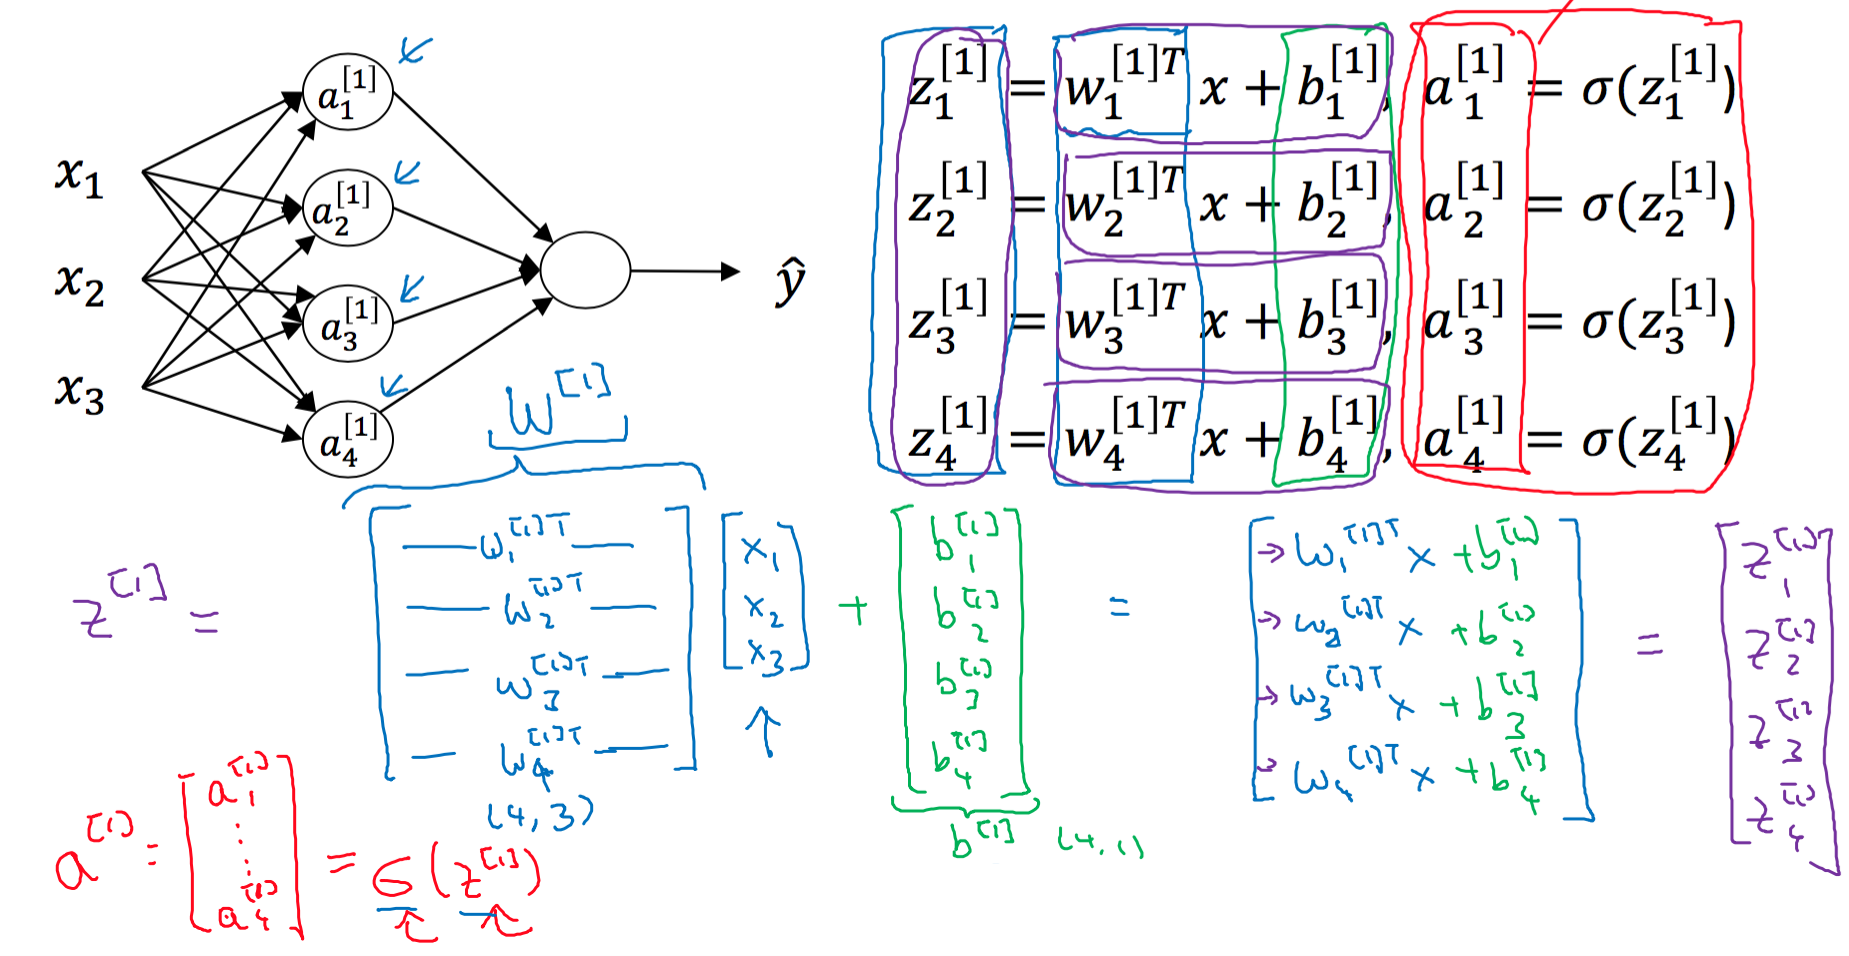 x₁
x₂
x₃
a₁^[1]
a₂^[1]
a₃^[1]
a₄^[1]
ŷ
z₁^[1] = w₁^[1]T x + b₁^[1], a₁^[1] = σ(z₁^[1])
z₂^[1] = w₂^[1]T x + b₂^[1], a₂^[1] = σ(z₂^[1])
z₃^[1] = w₃^[1]T x + b₃^[1], a₃^[1] = σ(z₃^[1])
z₄^[1] = w₄^[1]T x + b₄^[1], a₄^[1] = σ(z₄^[1])
W^[1]
z^[1] =
w₁^[1]T
w₂^[1]T
w₃^[1]T
w₄^[1]T
(4,3)
x₁
x₂
x₃
+
b₁^[1]
b₂^[1]
b₃^[1]
b₄^[1]
b^[1] (4,1)
=
→ w₁^[1]T x + b₁^[1]
→ w₂^[1]T x + b₂^[1]
→ w₃^[1]T x + b₃^[1]
→ w₄^[1]T x + b₄^[1]
=
z₁^[1]
z₂^[1]
z₃^[1]
z₄^[1]
a^[1] =
a₁^[1]
⋮
a₄^[1]
= σ(z^[1])